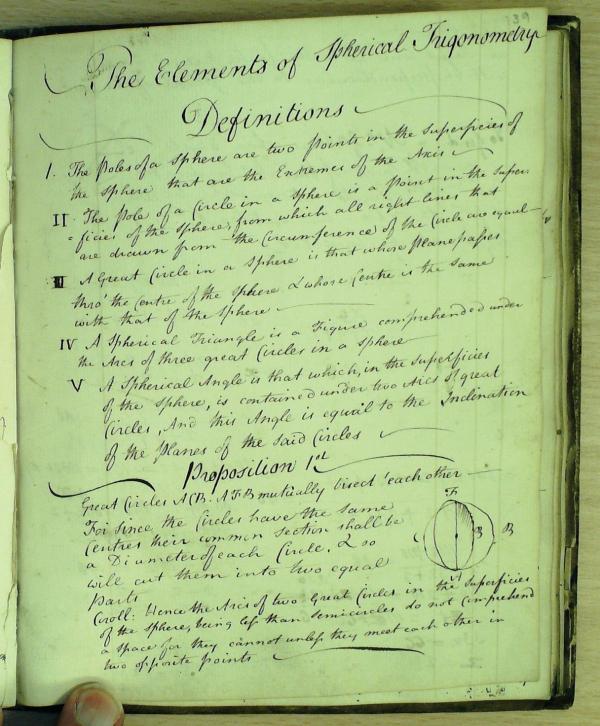 139
The Elements of Spherical Trigonometry
Definitions
I. The Poles of a Sphere are two points in the Superficies of
the Sphere that are the Extremes of the Axis
II The Pole of a Circle in a Sphere is a Point in the Super-
ficies of the Sphere, from which all right lines that
are drawn from the Circumference of the Circle are equal
III A Great Circle in a Sphere is that whose Plane passes
thro' the Centre of the Sphere & whose Centre is the same
with that of the Sphere
IV A Spherical Triangle is a Figure comprehended under
the Arcs of three great Circles in a Sphere
V A Spherical Angle is that which, in the Superficies
of the Sphere, is contained under two Arcs of great
Circles, And this Angle is equal to the Inclination
of the Planes of the said Circles
Proposition 1st
Great Circles ACB. AFB mutually bisect each other
For since the Circles have the same
Centres their common section shall be
a Diameter of each Circle, & so
will cut them into two equal
Parts
F
B B
Coroll: Hence the Arcs of two Great Circles in the Superficies
of the Sphere, being less than Semicircles do not Comprehend
a space for they cannot unless they meet each other in
two opposite points